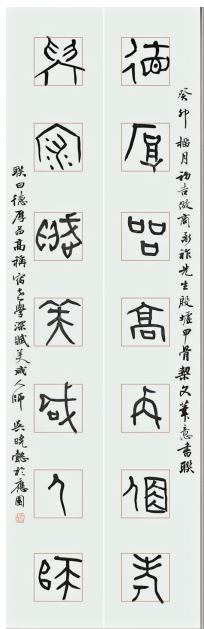 癸卯榴月初吉倣商承祚先生殷墟甲骨契文筆意書联
德厚品高稱宿老
學深臧美成人師
联曰德厚品高稱宿老學深臧美成人師 吴晓懿於應園